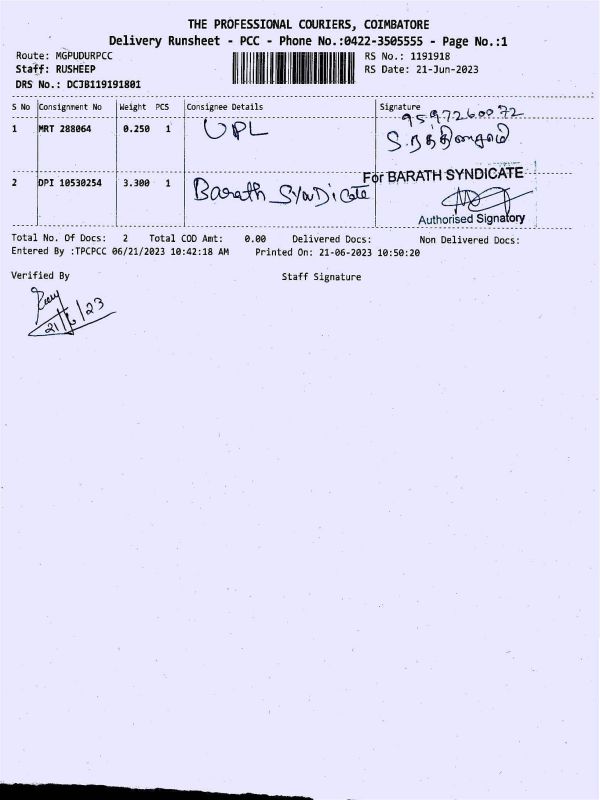 THE PROFESSIONAL COURIERS, COIMBATORE
Delivery Runsheet - PCC - Phone No.:0422-3505555 - Page No.:1
Route: MGPUDURPCC RS No.: 1191918
Staff: RUSHEEP RS Date: 21-Jun-2023
DRS No.: DCJB119191801
S No Consignment No Weight PCS Consignee Details Signature
9597260072
1 MRT 288064 0.250 1 UPL
2 DPI 10530254 3.300 1 Barath Syndicate For BARATH SYNDICATE
Authorised Signatory
Total No. Of Docs: 2 Total COD Amt: 0.00 Delivered Docs: Non Delivered Docs:
Entered By :TPCPCC 06/21/2023 10:42:18 AM Printed On: 21-06-2023 10:50:20
Verified By Staff Signature
21/6/23